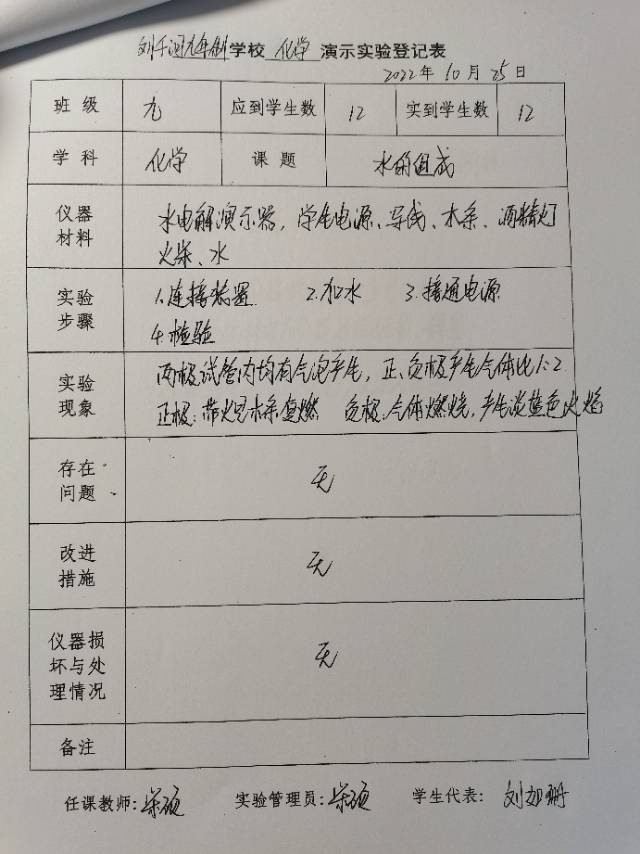 刘千河九年制学校 化学 演示实验登记表
2022年10月25日
班级 九 应到学生数 12 实到学生数 12
学科 化学 课题 水的组成
仪器材料 水电解演示器,学生电源、导线、木条、酒精灯
火柴、水
实验步骤 1.连接装置 2.加水 3.接通电源
4.检验
实验现象 两极试管内均有气泡产生,正、负极产生气体比1:2
正极:带火星木条复燃 负极:气体燃烧,产生淡蓝色火焰
存在问题 无
改进措施 无
仪器损坏与处理情况 无
备注
任课教师: 实验管理员: 学生代表:刘加珊